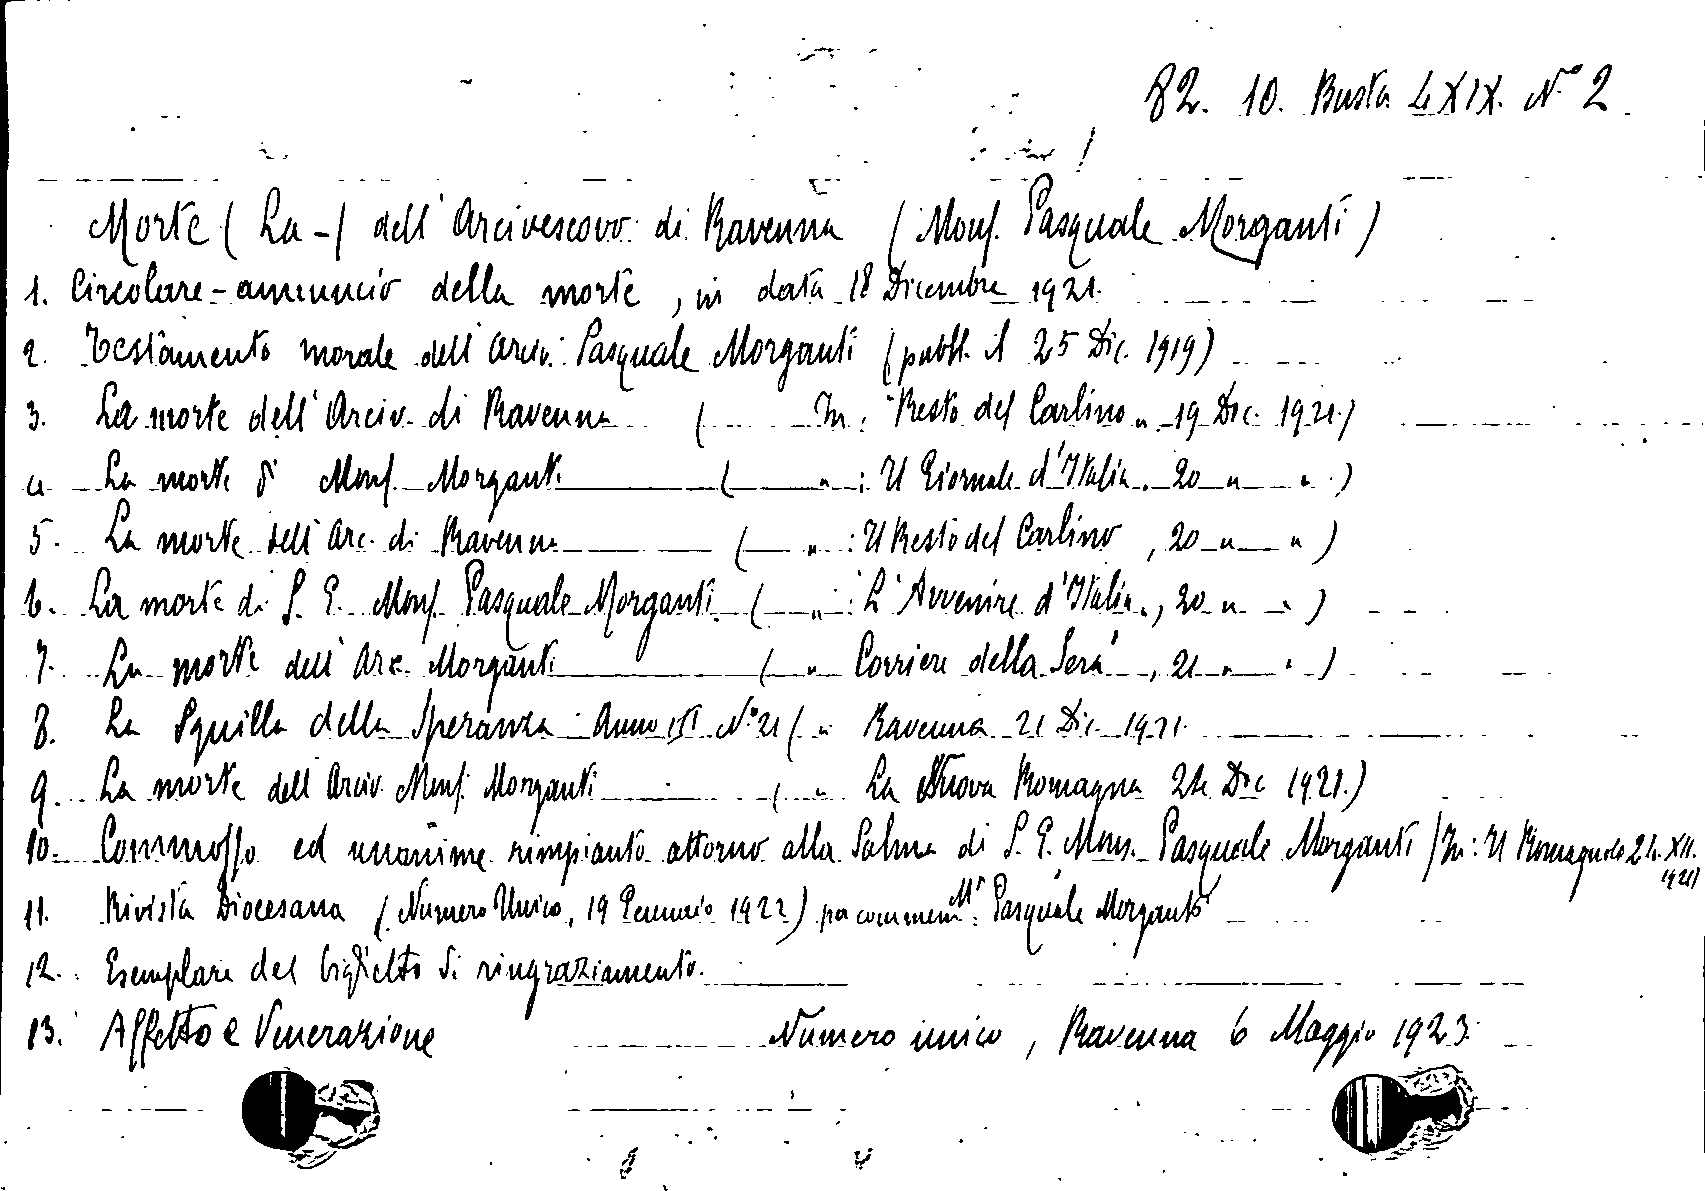 82. 10. Busta LXIX. N° 2
Morte (La -) dell'Arcivescovo di Ravenna (Mons. Pasquale Morganti)
1. Circolare-annuncio della morte, in data 18 Dicembre 1921.
2. Testamento morale dell'Arciv. Pasquale Morganti (pubbl. il 25 Dic. 1919)
3. La morte dell'Arciv. di Ravenna ( In: "Resto del Carlino" 19 Dic. 1921.)
4 La morte di Mons. Morganti ( " : Il Giornale d'Italia. 20 " " )
5. La morte dell'Arc. di Ravenna ( " : Il Resto del Carlino, 20 " " )
6. La morte di S. E. Mons. Pasquale Morganti ( " : L'Avvenire d'Italia, 20 " " )
7. La morte dell'Arc. Morganti ( " Corriere della Sera, 21 " " )
8. La Squilla della Speranza Anno III N° 21 ( " Ravenna 21 Dic. 1921.
9. La morte dell'Arciv. Mons. Morganti ( " La Nuova Romagna 24 Dic 1921.)
10. Commosso ed unanime rimpianto attorno alla Salma di S. E. Mons. Pasquale Morganti (In: Il Romagnolo 24. XII. 1921)
11. Rivista Diocesana (Numero Unico, 19 Gennaio 1922) per commem. Mr Pasquale Morganti
12. Esemplare del biglietto di ringraziamento.
13. Affetto e Venerazione Numero unico, Ravenna 6 Maggio 1923.